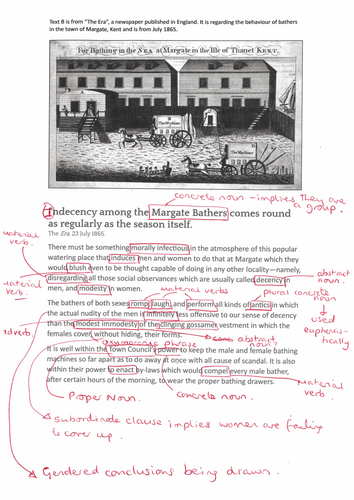 Text B is from "The Era", a newspaper published in England. It is regarding the behaviour of bathers
in the town of Margate, Kent and is from July 1865.
For Bathing in the SEA at Margate in the Isle of Thanet KENT.
The Machine
The Machine
concrete noun - implies they are
a group.
Indecency among the Margate Bathers comes round
as regularly as the season itself.
The Era, 23 July 1865.
material
verb.
There must be something morally infectious in the atmosphere of this popular
watering place that induces men and women to do that at Margate which they
would blush even to be thought capable of doing in any other locality—namely,
disregarding all those social observances which are usually called decency in
men, and modesty in women.
abstract
noun.
material
verb
material verbs
plural concrete
noun
The bathers of both sexes romp, laugh, and perform all kinds of antics in which
the actual nudity of the men is infinitely less offensive to our sense of decency
than the modest immodesty of the clinging gossamer vestment in which the
females cover, without hiding, their forms.
used
euphemis-
tically
adverb
abstract
noun
It is well within the Town Council's power to keep the male and female bathing
machines so far apart as to do away at once with all cause of scandal. It is also
within their power to enact by-laws which would compel every male bather,
after certain hours of the morning, to wear the proper bathing drawers.
material
verb.
Proper Noun.
Concrete noun.
Subordinate clause implies women are failing
to cover up.
Gendered conclusions being drawn.